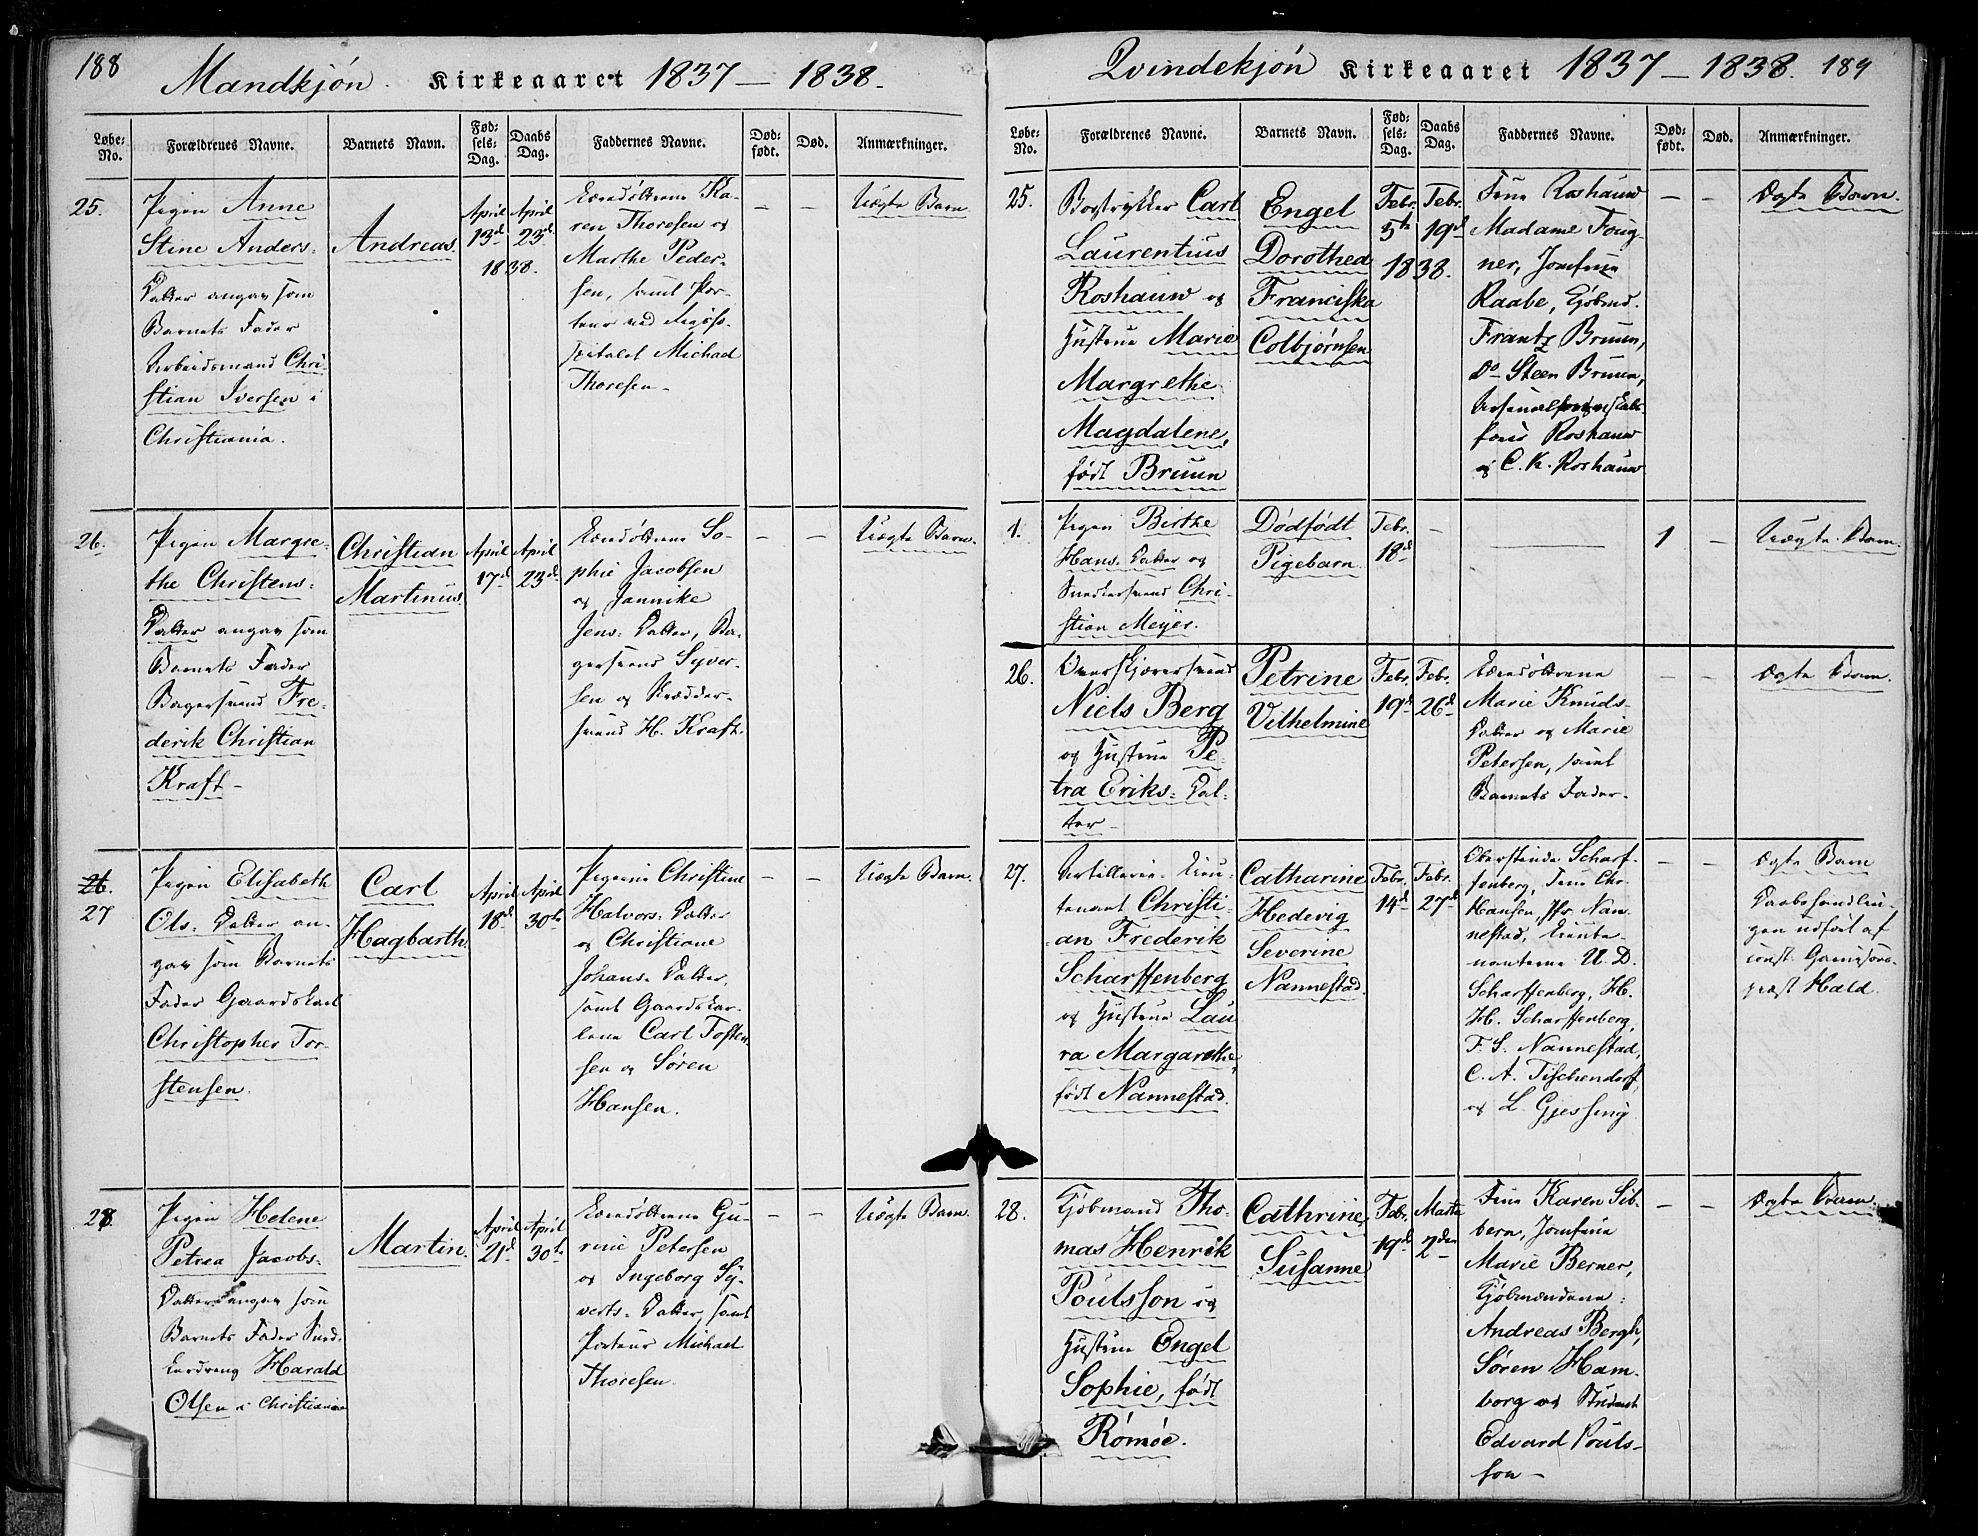 188
Mandkjøn. Kirkeaaret 1837 – 1838.
Løbe-No. Forældrenes Navne. Barnets Navn. Fødsels-Dag. Daabs Dag. Faddernes Navne. Dødfødt. Død. Anmærkninger.
25.
Pigen Anne
Stine Anders-
Datter angav som
Barnets Fader
Arbeidsmand Chri-
stian Iversen i
Christiania.
Andreas.
April 13d
April 23d
1838.
Ka-
ren Thoresen og
Marthe Peder-
sen, samt Por-
Michael
Thoresen –
– –
Uægte Barn
26.
Pigen Margre-
the Christens-
Datter angav som
Barnets Fader
Bagersvend Fre-
derik Christian
Kraft –
Christian
Martinus
April 17d
April 23d
So-
phie Jacobsen
og Jannike
Jens-Datter, Ba-
gersvend Syver-
sen og Skrædder-
svend H. Kraft.
– –
Uægte Barn
26.
27
Pigen Elisabeth
Ols-Datter an-
gav som Barnets
Fader Gaardskarl
Christopher Tor-
stensen.
Carl
Hagbarth.
April 18d
April 30te
Pigerne Christine
Halvors-Datter
og Christiane
Johans-Datter,
samt Gaardskar-
lene Carl Tosten-
sen og Søren
Hansen.
– –
Uægte Barn.
28.
Pigen Helene
Petrea Jacobs-
Datter angav som
Barnets Fader Sned-
kerdreng Harald
Olsen i Christiania
Martin.
April 21d
April 30te
Gu-
rine Petersen
og Ingeborg Sy-
verts-Datter, samt
Porteur Michael
Thoresen.
– –
Uægte Barn.
Qvindekjøn Kirkeaaret 1837 – 1838. 189
Løbe-No. Forældrenes Navne. Barnets Navn. Fødsels-Dag. Daabs Dag. Faddernes Navne. Dødfødt. Død. Anmærkninger.
25.
Bogtrykker Carl
Laurentius
Roshauw og
Hustrue Marie
Margrethe
Magdalene,
født Bruun
Engel
Dorothea
Franciska
Colbjørnsen
Febr. 5te
Febr. 19d
1838.
Frue Roshauw
Madame Foug-
ner, Jomfrue
Raabe, Kjøbmd.
Frantz Bruun,
Do Steen Bruun,
Roshauw
og C. K. Roshauw
– –
Ægte Barn.
1.
Pigen Birthe
Hans-Datter og
Snedkersvend Chri-
stian Meyer.
Dødfødt
Pigebarn
Febr. 18d
–
1 –
Uægte Barn.
26.
Overskjærersvend
Niels Berg
og Hustrue Pe-
tra Eriks-Dat-
ter –
Petrine
Vilhelmine
Febr. 19d
Febr. 26d
Marie Knuds-
Datter og Marie
Petersen, samt
Barnets Fader –
– –
Ægte Barn.
27.
Artillerie-Lieu-
tenant Christi-
an Frederik
Scharffenberg
og Hustrue Lau-
ra Margarethe,
født Nannestad.
Catharine
Hedevig
Severine
Nannestad.
Febr. 14d
Febr. 27d
Oberstinde Scharf-
fenberg, Frue Chr.
Hansen, Nan-
nestad, Lieute-
nanterne U. D.
Scharffenberg, H.
H. Scharffenberg,
F. S. Nannestad,
C. A. Tischendorf
og L. Gjessing
– –
Ægte Barn
Daabshandlin-
gen udført af
const. Garnisons-
præst Hald.
28.
Kjøbmand Tho-
mas Henrik
Poulsson og
Hustrue Engel
Sophie, født
Rømøe.
Cathrine
Susanne
Febr. 19d
Marts 2den
Frue Karen Sib-
bern, Jomfrue
Marie Berner,
Kjøbmændene:
Andreas Bergh,
Søren Ham-
borg og Student
Edvard Pouls-
son –
– –
Ægte Barn.